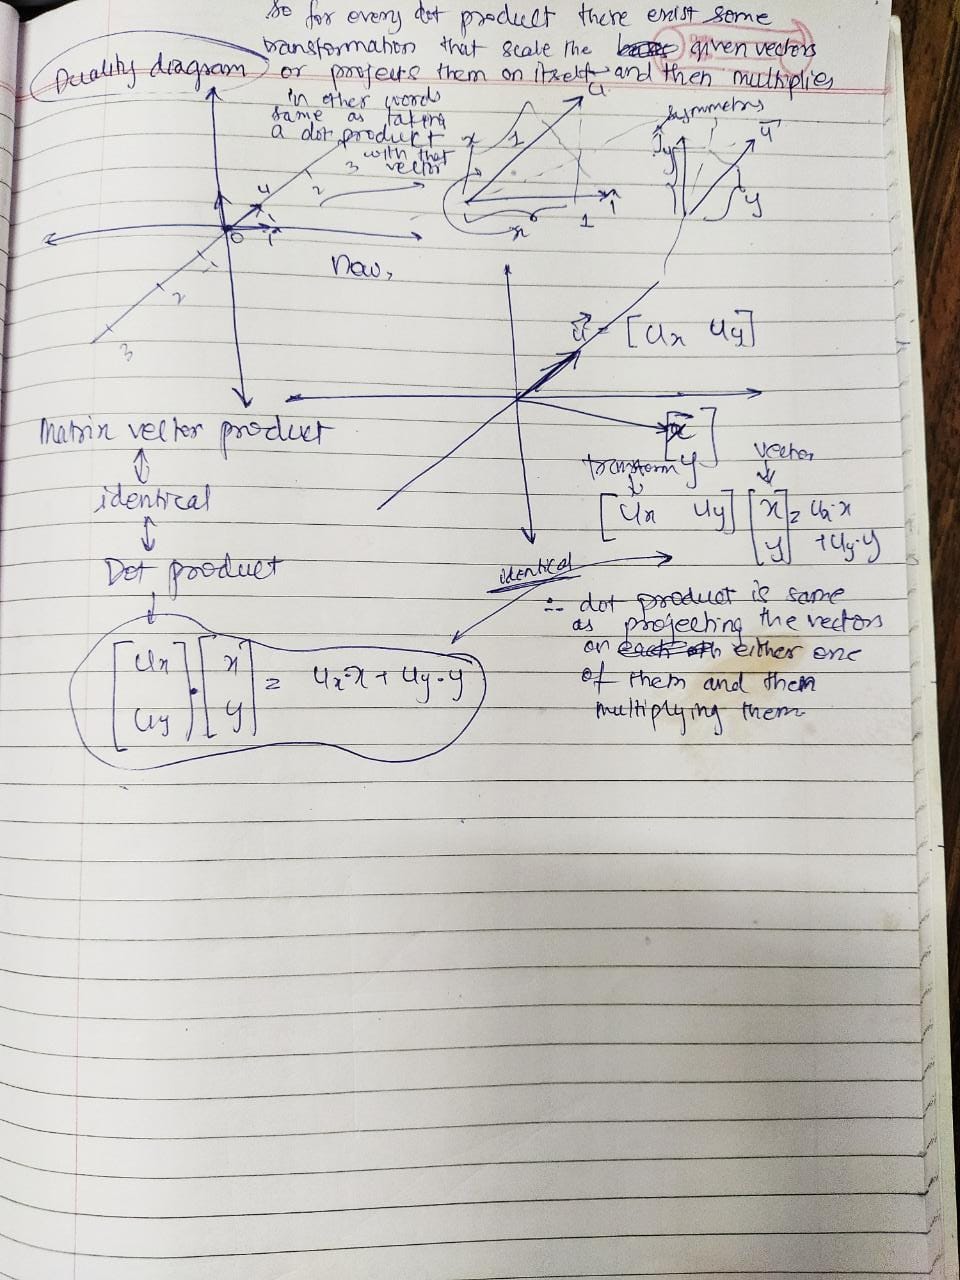 so for every dot product there exist some
transformation that scale the given vectors
Duality diagram
or projects them on itself and then multiplies
in other words
same as taking
a dot product
with that
vector
3
2
u
0
î
1
2
3
x
1
u
î
1
x
symmetry
ĵ
y
u
y
Now,
u = [ux uy]
[x
y]
Matrix vector product
identical
Dot product
transform
vector
[ux uy] [x y] = ux·x
+uy·y
identical
[ux uy] · [x y] = ux·x + uy·y
∴ dot product is same
as projecting the vectors
on either one
of them and them
multiplying them